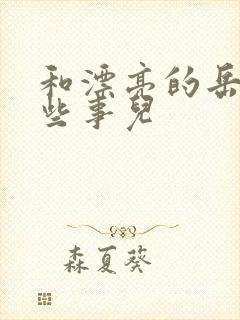 和漂亮的岳
些事兒
森夏葵